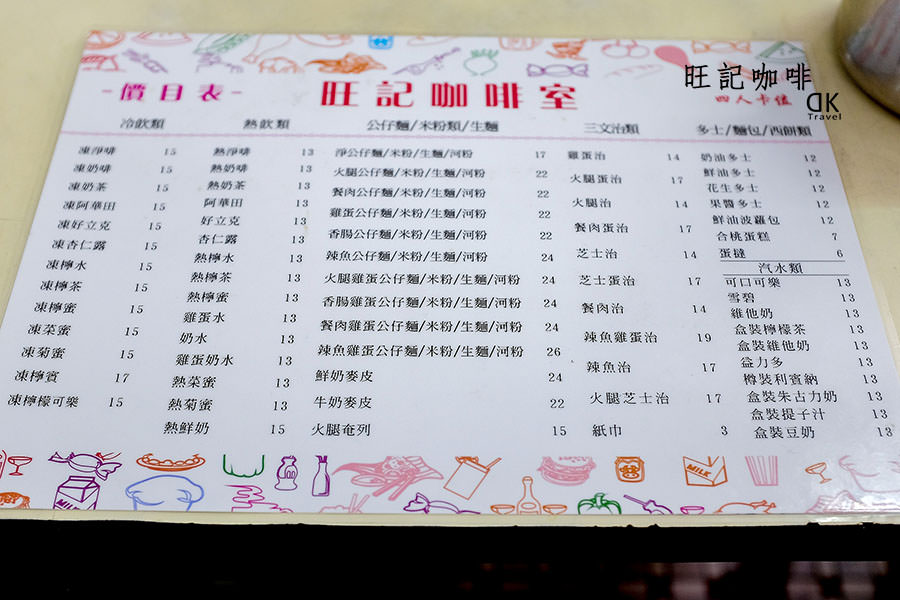 -價目表-
旺記咖啡室
旺記咖啡
四人卡位
DK
Travel
冷飲類
凍淨啡 15
凍奶啡 15
凍奶茶 15
凍阿華田 15
凍好立克 15
凍杏仁露 15
凍檸水 15
凍檸茶 15
凍檸蜜 15
凍菜蜜 15
凍菊蜜 15
凍檸賓 17
凍檸檬可樂 15
熱飲類
熱淨啡 13
熱奶啡 13
熱奶茶 13
阿華田 13
好立克 13
杏仁露 13
熱檸水 13
熱檸茶 13
熱檸蜜 13
雞蛋水 13
奶水 13
雞蛋奶水 13
熱菜蜜 13
熱菊蜜 13
熱鮮奶 15
公仔麵/米粉類/生麵
淨公仔麵/米粉/生麵/河粉 17
火腿公仔麵/米粉/生麵/河粉 22
餐肉公仔麵/米粉/生麵/河粉 22
雞蛋公仔麵/米粉/生麵/河粉 22
香腸公仔麵/米粉/生麵/河粉 22
辣魚公仔麵/米粉/生麵/河粉 24
火腿雞蛋公仔麵/米粉/生麵/河粉 24
香腸雞蛋公仔麵/米粉/生麵/河粉 24
餐肉雞蛋公仔麵/米粉/生麵/河粉 24
辣魚雞蛋公仔麵/米粉/生麵/河粉 26
鮮奶麥皮 24
牛奶麥皮 22
火腿奄列 15
三文治類
雞蛋治 14
火腿蛋治 17
火腿治 14
餐肉蛋治 17
芝士治 14
芝士蛋治 17
餐肉治 14
辣魚雞蛋治 19
辣魚治 17
火腿芝士治 17
紙巾 3
多士/麵包/西餅類
奶油多士 12
鮮油多士 12
花生多士 12
果醬多士 12
鮮油菠蘿包 12
合桃蛋糕 7
蛋撻 6
汽水類
可口可樂 13
雪碧 13
維他奶 13
盒裝檸檬茶 13
盒裝維他奶 13
益力多 13
樽裝利賓納 13
盒裝朱古力奶 13
盒裝提子汁 13
盒裝豆奶 13
MILK
MILK